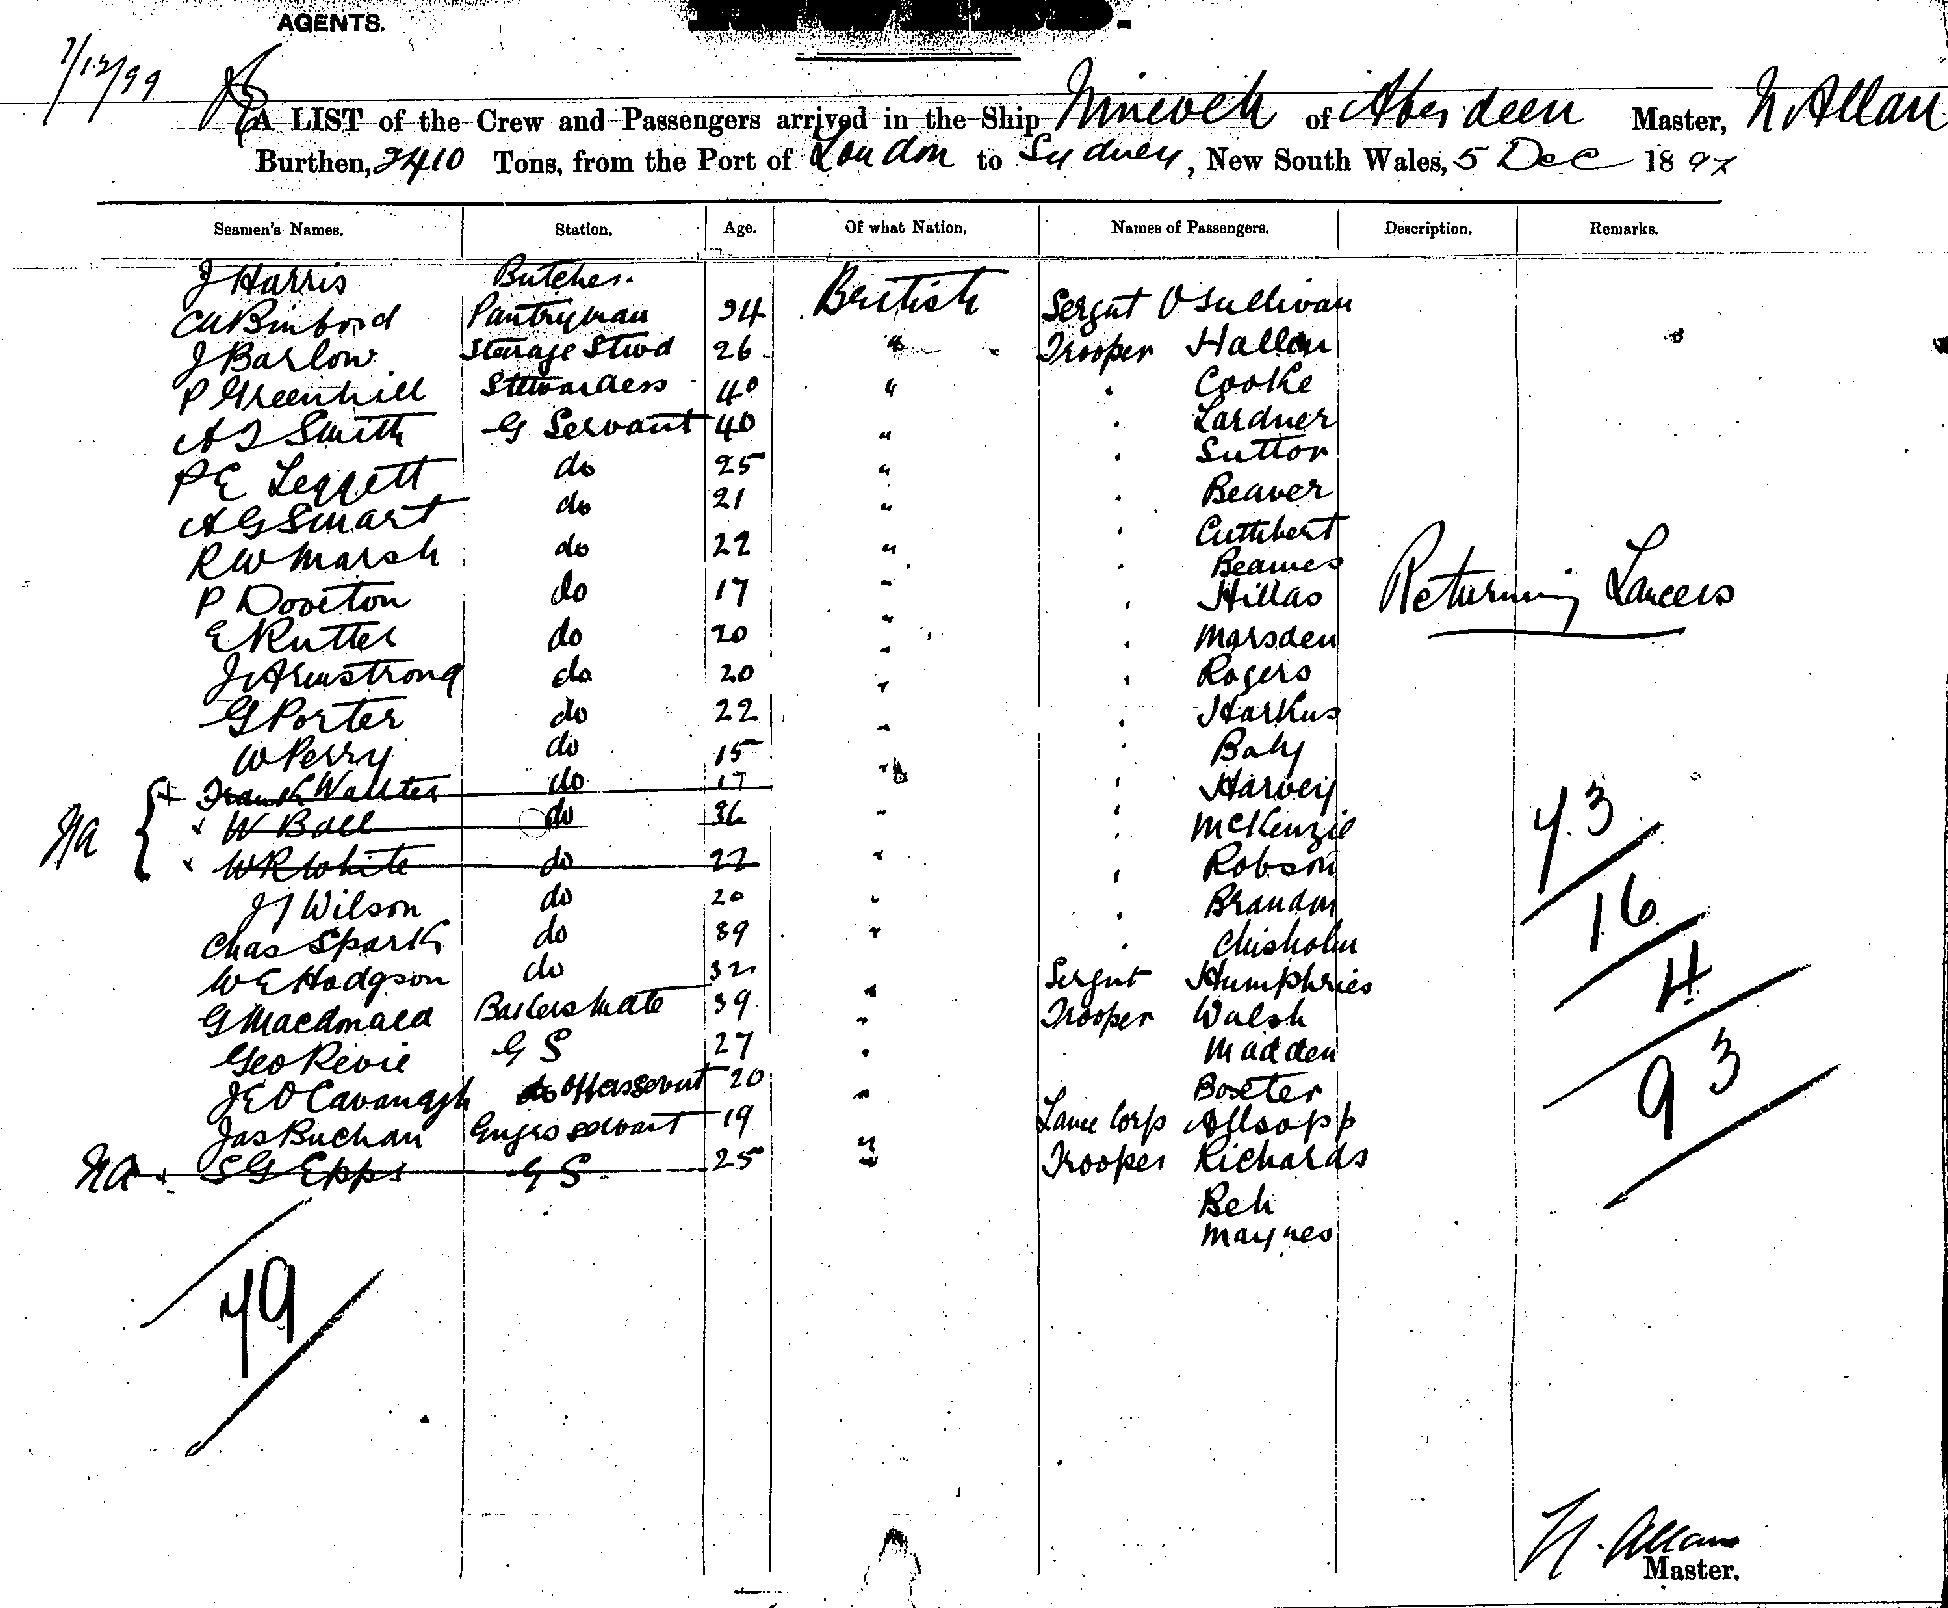 AGENTS.
7/12/99
A LIST of the Crew and Passengers arrived in the Ship Nineveh of Aberdeen Master, N Allan
Burthen, 2410 Tons, from the Port of London to Sydney, New South Wales, 5 Dec 189
Seamen's Names. Station. Age. Of what Nation. Names of Passengers. Description. Remarks.
J Harris Butcher.
Binbord Pantryman 34 British Sergnt O'Sullivan
J Barlow Steerage Stwd 26 " Trooper Hallon
P Greenhill Stewardess 40 " " Cooke
A J Smith G Servant 40 " " Lardner
P E Leggett do 25 " " Sutton
A G Smart do 21 " " Beaver
R W Marsh do 22 " " Cuthbert
P Doveton do 17 " " Beames
" Hillas Returning Lancers
E Rutter do 20 " " Marsden
J Armstrong do 20 " " Rogers
G Porter do 22 " " Harkus
W Perry do 15 " " Baly
Frank Walter do 17 " " Harvey
Na W Ball do 36 " " McKenzie 43
W R White do 22 " " Robson
J J Wilson do 20 " " Brandon 16
Chas Spark do 39 " " Chisholm
W E Hodgson do 32 " Sergnt Humphries 4
G Macdonald Bakers Mate 39 " Trooper Walsh
Geo Revie G S 27 " Madden
J E O Cavanagh do Offers servnt 20 " Boxter 93
Jas Buchan Engrs servant 19 " Lance Corp Allsopp
Na S G Epps G S 25 " Trooper Richards
Beh
Maynes
49
N. Allan
Master.